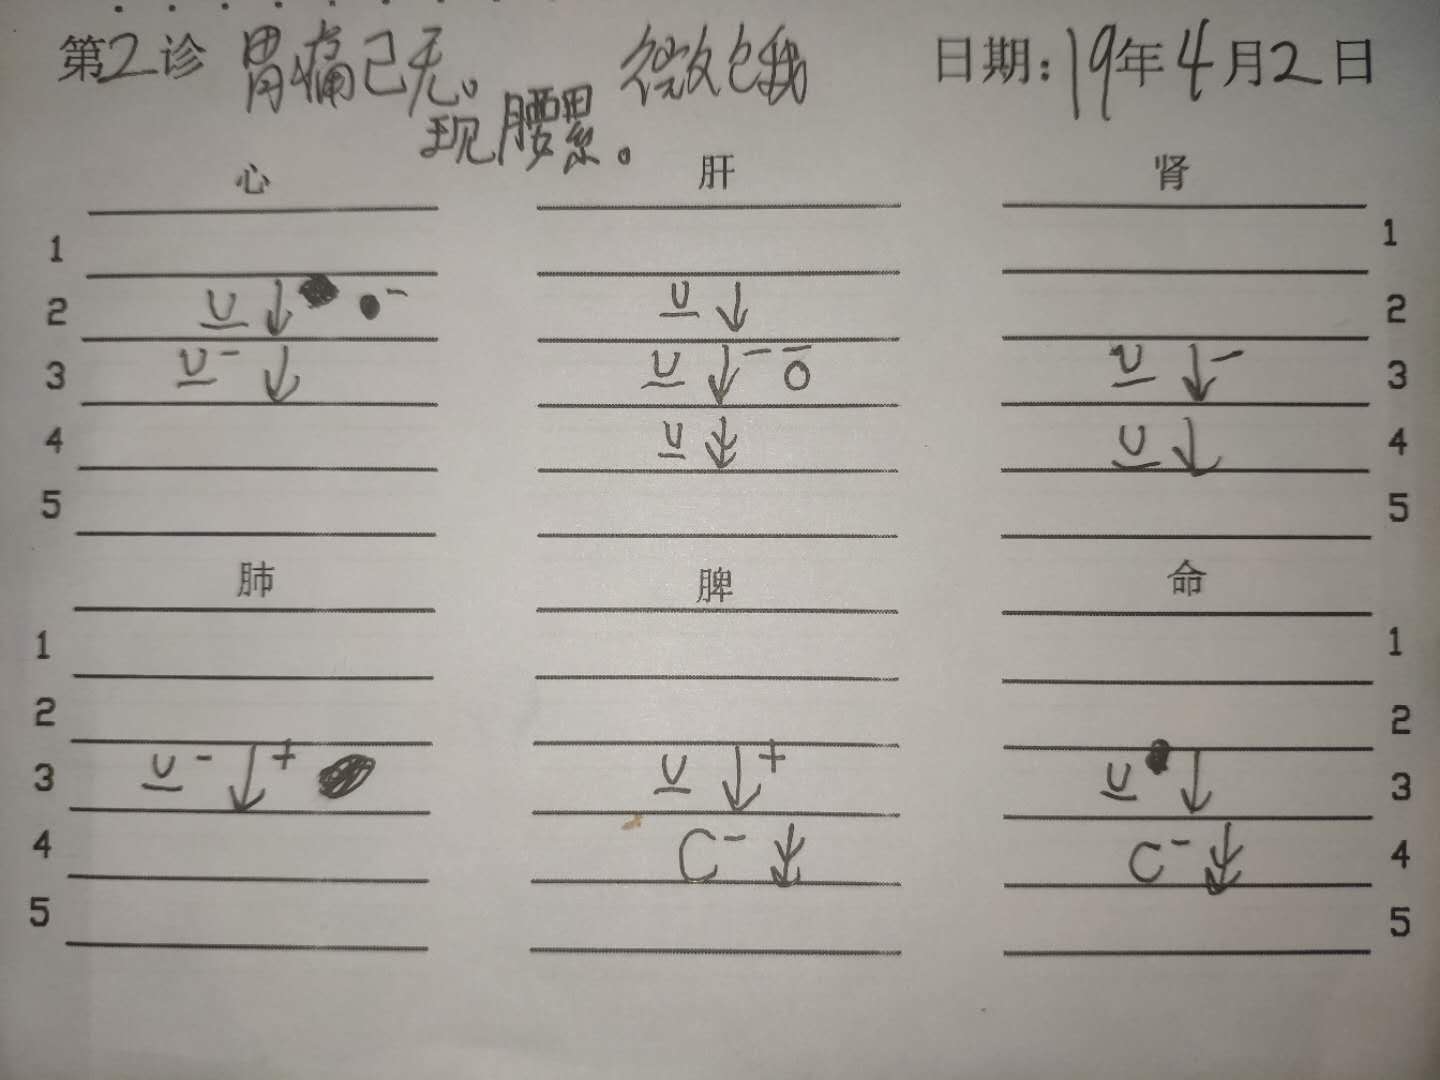 第2诊 胃痛已无。 微饿 日期:19年4月2日
现腰累。
心 肝 肾
1 1
2 U ↓ ●⁻ U ↓ 2
3 U⁻ ↓ U ↓⁻ ō U ↓⁻ 3
4 U U ↓ 4
5 5
肺 脾 命
1 1
2 2
3 U⁻ ↓⁺ U ↓⁺ U ↓ 3
4 C⁻ C⁻ 4
5 5